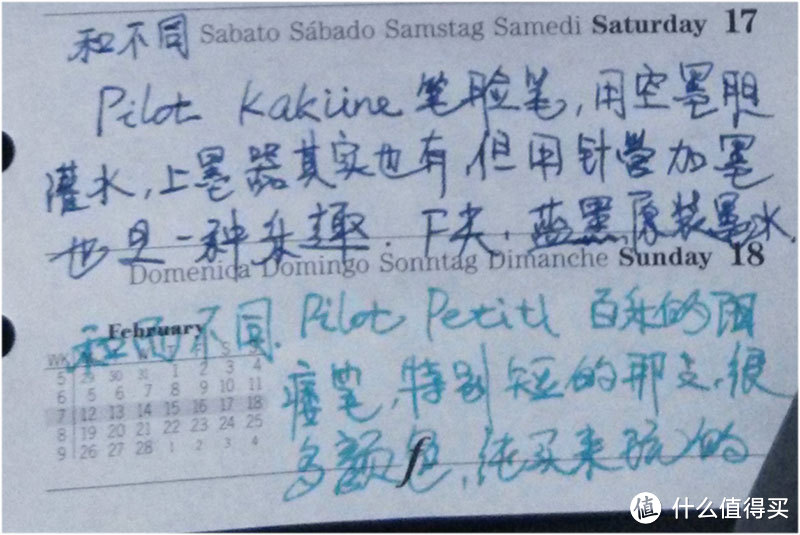 和不同 Sabato Sábado Samstag Samedi Saturday 17
Pilot Kaküne 笔脸笔,用空墨胆
灌水,上墨器其实也有,但用针管加墨
也是一种乐趣. F尖,蓝黑原装墨水.
Domenica Domingo Sonntag Dimanche Sunday 18
February
和而不同. Pilot Petit1 百乐的
笔,特别短的那支,很
多颜色,纯买来玩的
WK M W F S S
5 29 30 31 1 2 3 4
6 5 6 7 8 9 10 11
7 12 13 14 15 16 17 18
8 19 20 21 22 23 24 25
9 26 27 28 1 2 3 4
f
值 什么值得买